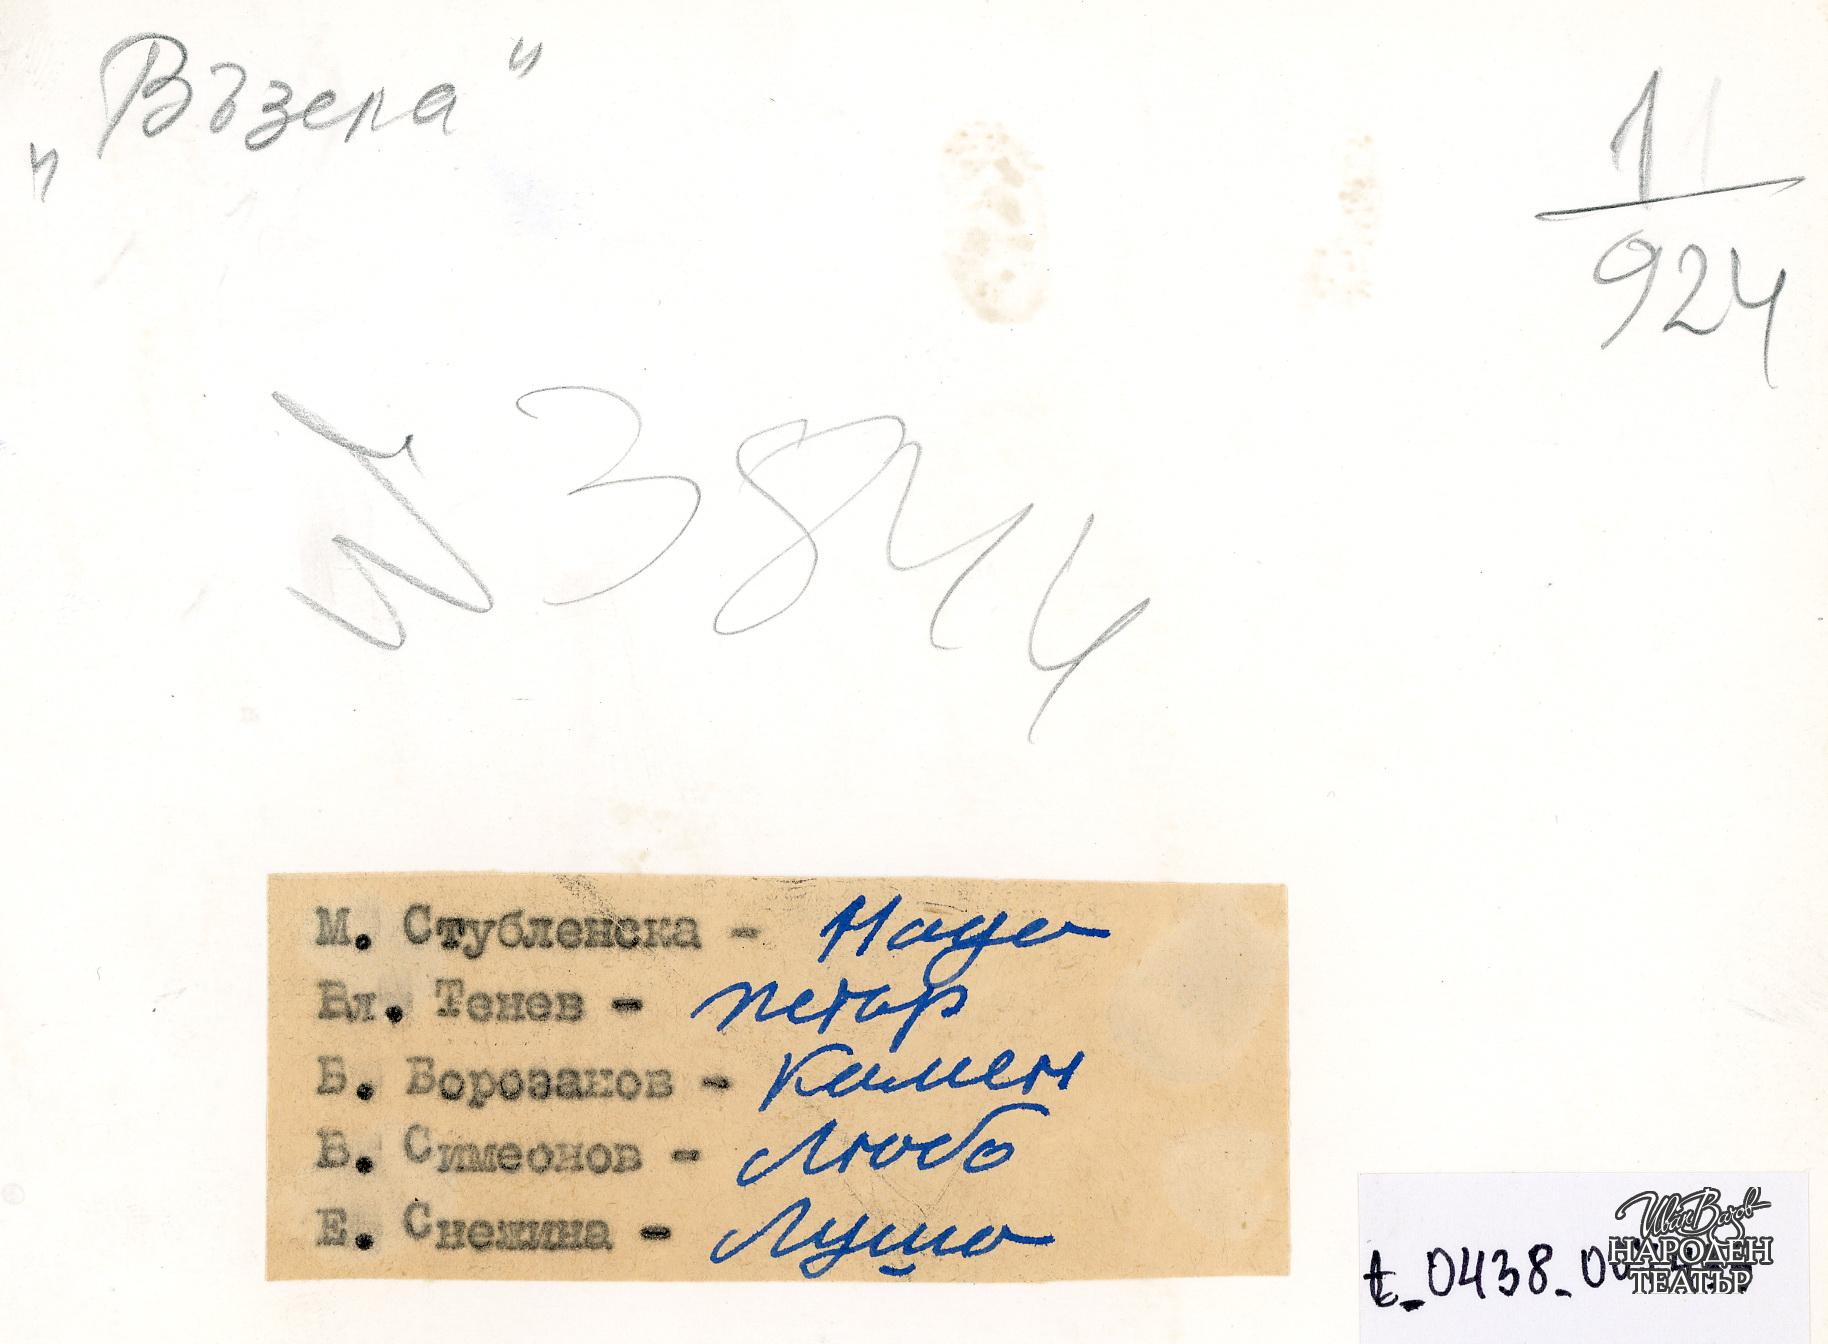 „Възела“
1
924
№ 3844
М. Стубленска - Нада
Вл. Тенев - Петър
Б. Борозанов - Камен
В. Симеонов - Любо
Е. Снежина - Луша
t_0438_00
Иван Вазов
НАРОДЕН
ТЕАТЪР